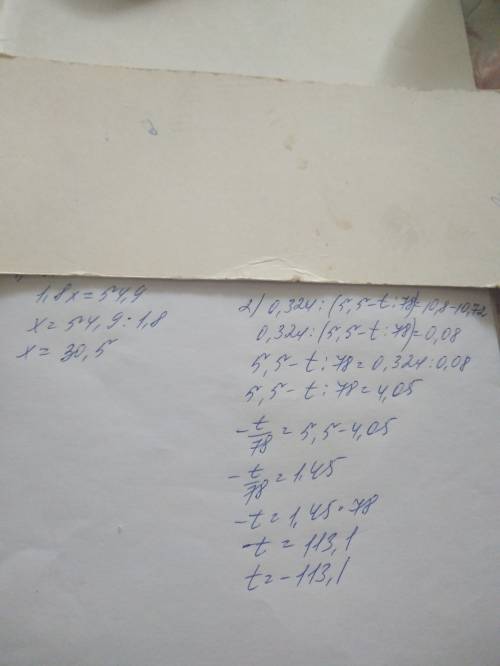 1,8x=54,9
x=54,9:1,8
x=30,5
2) 0,324:(5,5-t:78)=10,8-10,72
0,324:(5,5-t:78)=0,08
5,5-t:78=0,324:0,08
5,5-t:78=4,05
-t/78=5,5-4,05
-t/78=1,45
-t=1,45*78
-t=113,1
t=-113,1